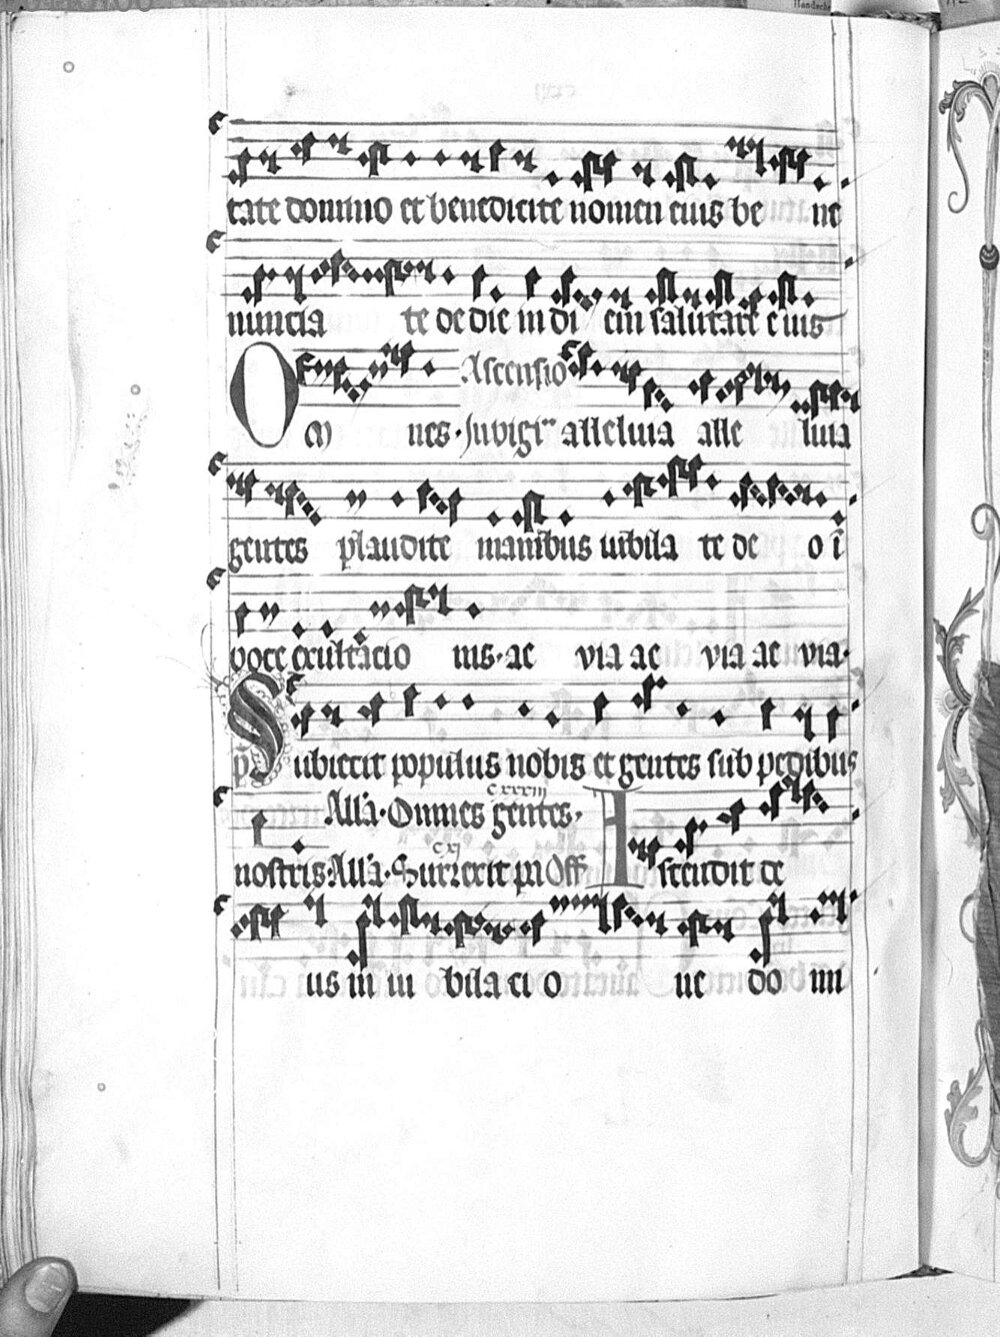 tate domino et benedicite nomen eius be ne
nuncia te de die in di em salutare eius
Ascensio
Om nes. In vigi⁓ alleluia alle luia
gentes plaudite manibus iubila te deo ī
voce exultacio nis. ae via ae via ae via.
ps Subiecit populus nobis et gentes sub pedibus
cxxxiii
All'a. Omnes gentes.
cxj
nostris. All'a. Surrexit pa Off Ascendit de
us in iu bilacio ne do mi